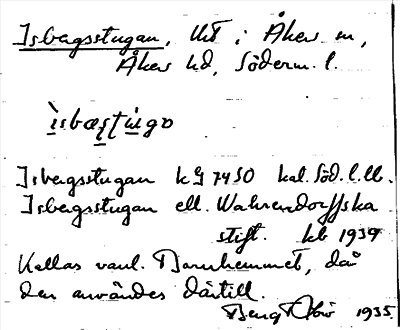 Isbergsstugan, lht i Åkers sn,
Åkers hd, Söderm. l.
ìsbæʂtùgo
Isbergsstugan kJ 7450 kal. Söd. l. ll.
Isbergsstugan ell. Wahrendorffska
stift. kb 1934
Kallas vanl. Barnhemmet, då
den användes därtill.
Beng 1935